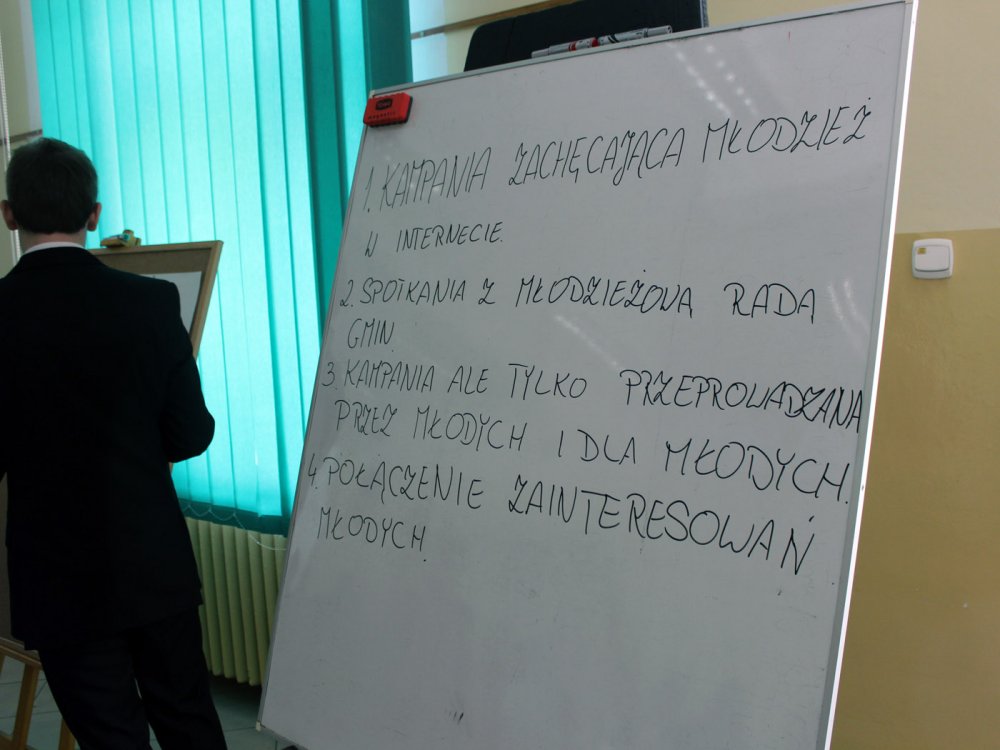 1. KAMPANIA ZACHĘCAJĄCA MŁODZIEŻ
W INTERNECIE.
2. SPOTKANIA Z MŁODZIEŻOVĄ RADA
GMIN
3. KAMPANIA ALE TYLKO PRZEPROWADZANA
PRZEZ MŁODYCH I DLA MŁODYCH.
4. POŁĄCZENIE ZAINTERESOWAŃ
MŁODYCH.